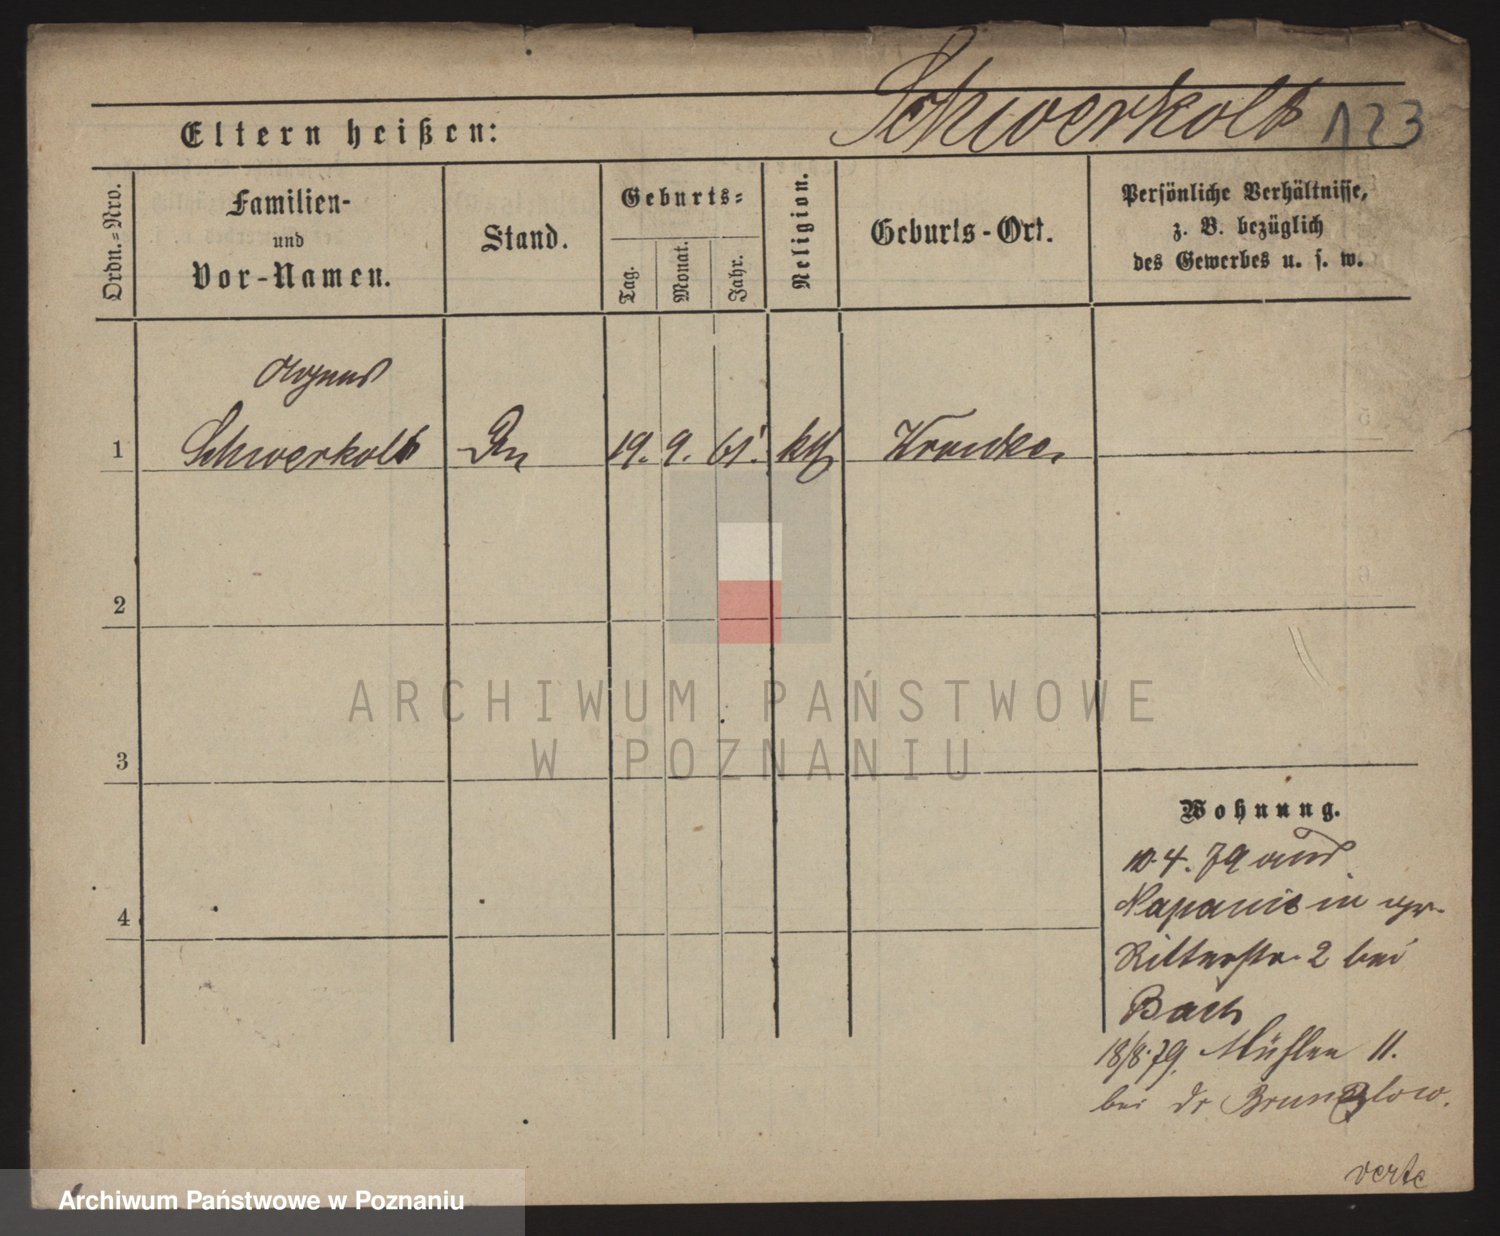 Schwerkolt 123
Eltern heißen:
Ordn.=Nro.
Familien-
und
Vor-Namen.
Stand.
Geburts=
Tag.
Monat.
Jahr.
Religion.
Geburts-Ort.
Persönliche Verhältnisse,
z. B. bezüglich
des Gewerbes u. s. w.
Agnes
1 Schwerkolt 19. 9. 61. kth
2
3
4
ARCHIWUM PAŃSTWOWE
W POZNANIU
Wohnung.
10.4.79 aus
in
Ritterstr. 2 bei
Bach
18/8.79. Mühlen 11.
bei Dr
verte
Archiwum Państwowe w Poznaniu